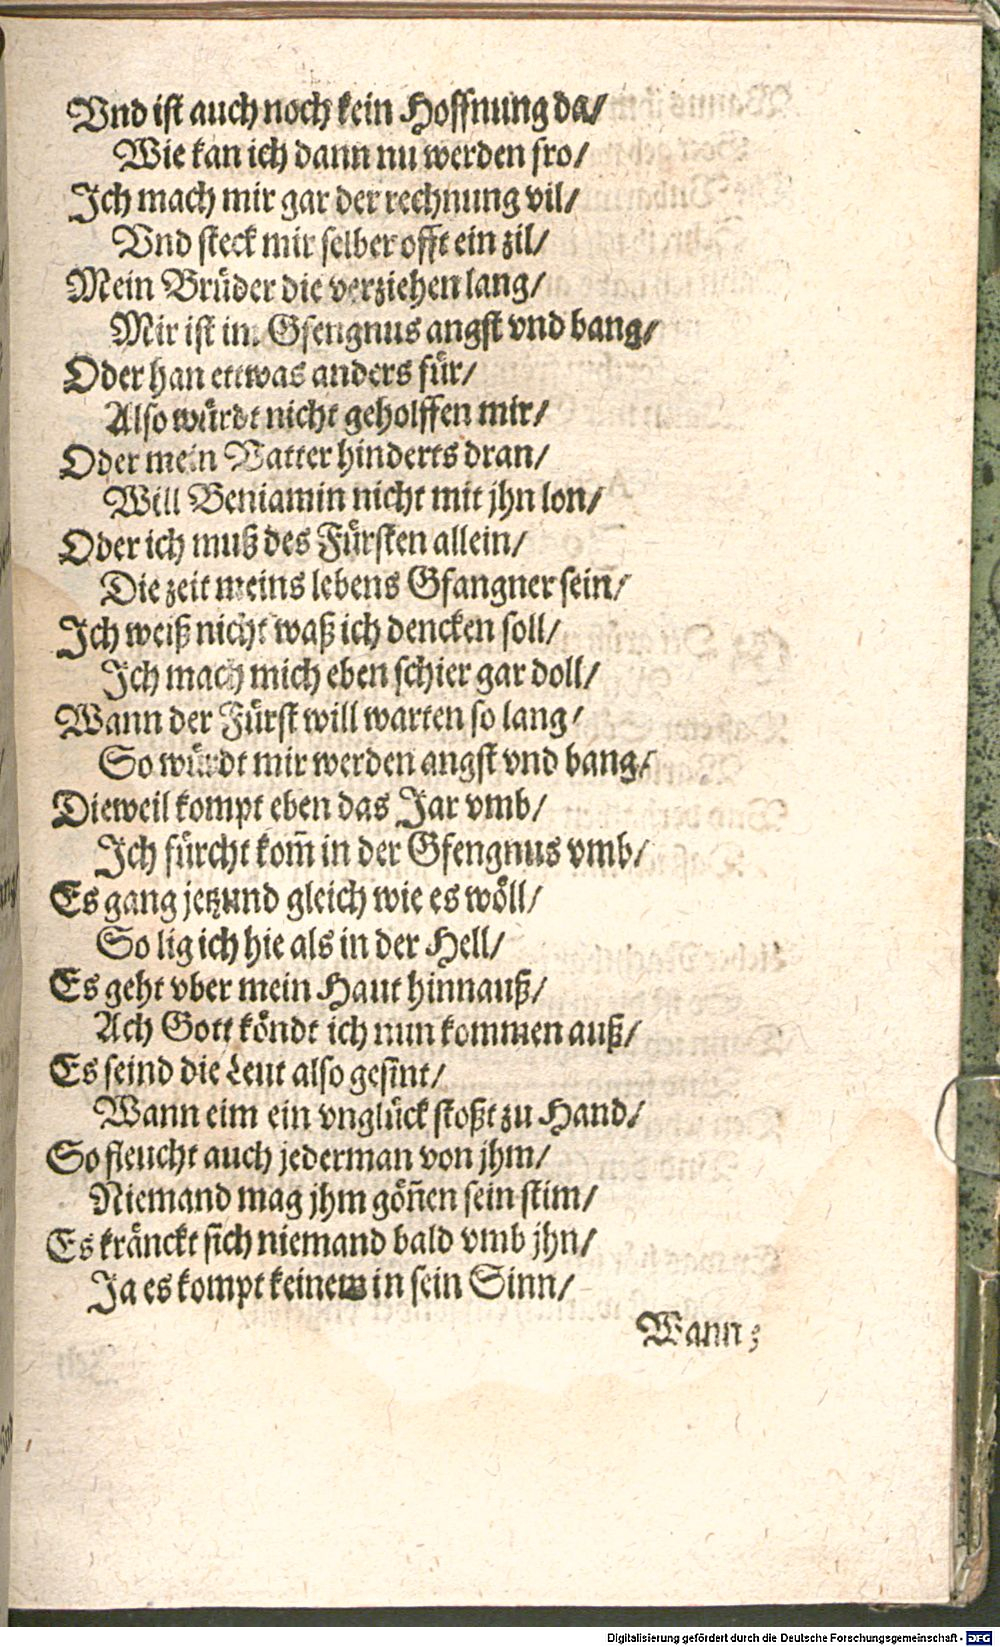 Vnd ist auch noch kein Hoffnung da/
Wie kan ich dann nu werden fro/
Ich mach mir gar der rechnung vil/
Vnd steck mir selber offt ein zil/
Mein Brüder die verziehen lang/
Mir ist im Gfengnus angst vnd bang/
Oder han ettwas anders für/
Also würdt nicht geholffen mir/
Oder mein Vatter hinderts dran/
Will Beniamin nicht mit jhn lon/
Oder ich muß des Fürsten allein/
Die zeit meins lebens Gfangner sein/
Ich weiß nicht waß ich dencken soll/
Ich mach mich eben schier gar doll/
Wann der Fürst will warten so lang/
So würdt mir werden angst vnd bang/
Dieweil kompt eben das Jar vmb/
Ich fürcht kom̃ in der Gfengnus vmb/
Es gang jetzund gleich wie es wöll/
So lig ich hie als in der Hell/
Es geht vber mein Haut hinnauß/
Ach Gott köndt ich nun kommen auß/
Es seind die Leut also gesint/
Wann eim ein vnglück stoßt zu Hand/
So fleucht auch jederman von jhm/
Niemand mag jhm gön̄en sein stim/
Es kränckt sich niemand bald vmb jhn/
Ja es kompt keinem in sein Sinn/
Wann
Digitalisierung gefördert durch die Deutsche Forschungsgemeinschaft - DFG